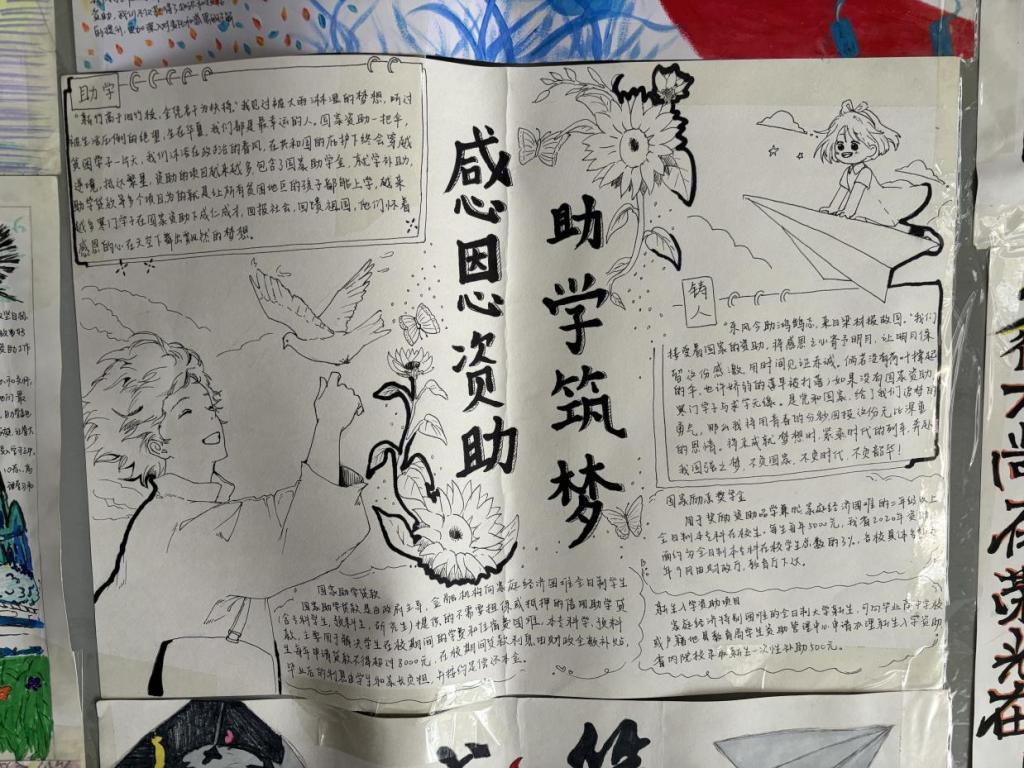 助学
"新竹高于旧竹枝,全凭老干为扶持。"我见过被大雨淋湿的梦想,听过
被生活压倒的绝望,生在华夏,我们都是最幸运的人。国家资助一把手,
贫困学子一片天,我们沐浴在政治的春风,在共和国的庇护下终会穿越
逆境,抵达繁星,资助的项目越来越多包含了国家助学金,就学补助,
助学贷款等多个项目为的就是让所有贫困地区的孩子都能上学,越来
越多寒门学子在国家资助下成仁成才,回报社会,回馈祖国,他们怀着
感恩的心在天空下舞出飘然的梦想。
感恩资助
助学筑梦
铸人
"东风今助鸿鹄志,来日梁材报故国。"我们
接受着国家的资助,将感恩之心寄予明月,让明月保
留这份感激,用时间见证赤诚。倘若没有荷叶撑起
的伞,也许娇弱的莲早被打落;如果没有国家资助
寒门学子与求学无缘。是党和国家,给了我们追梦的
勇气,那么我将用青春的分秒回报这份无比深重
的恩情。将来成就梦想时,乘乘时代的列车,奔赴
我国强之梦,不负国家,不负时代,不负韶华!
国家励志奖学金
用于奖励资助品学兼优家庭经济困难的二年级以上
全日制本专科在校生,每生每年5000元,我省2020年资助
面约为全日制本专科在校学生总数的3%,各校具体名
年9月由财政厅,教育厅下达。
新生入学资助项目
家庭经济特别困难的全日制大学新生,可向毕业高中学校
或户籍地县教育局学生资助管理中心申请办理新生入学资助
省内院校录取新生一次性补助500元。
国家助学贷款
国家助学贷款是由政府主导,金融机构向家庭经济困难全日制学生
(含专科学生,预科生,研究生)提供的不需要担保或抵押的信用助学贷
款,主要用于解决学生在校期间的学费和住宿费困难。本专科学,预科
生每年申请贷款不得超过8000元,在校期间贷款利息由财政全额补贴,
毕业后的利息由学生和家长负担,并按约定偿还本金。